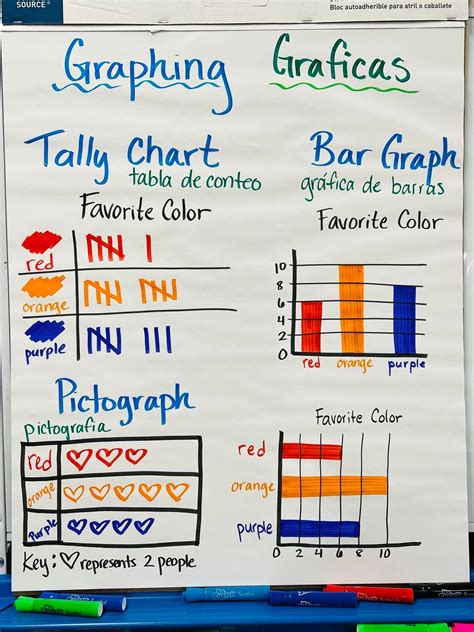 SOURCE
Bloc autoadherible para atril o caballete
Graphing Graficas
Tally Chart
tabla de conteo
Favorite Color
red
orange
purple
Bar Graph
gráfica de barras
Favorite Color
10
8
6
4
2
0
red orange purple
Pictograph
pictografia
red
orange
purple
Key: ♡ represents 2 people
Favorite Color
red
orange
purple
0 2 4 6 8 10